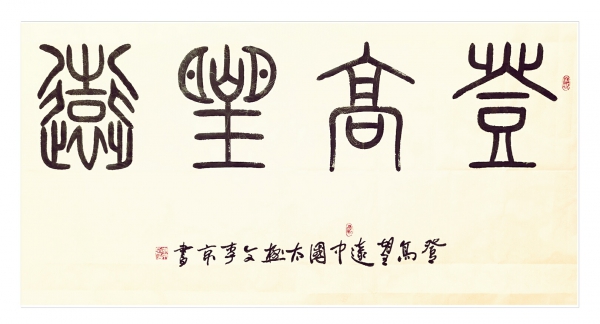 登高望遠
登高望遠中國太極文李京書